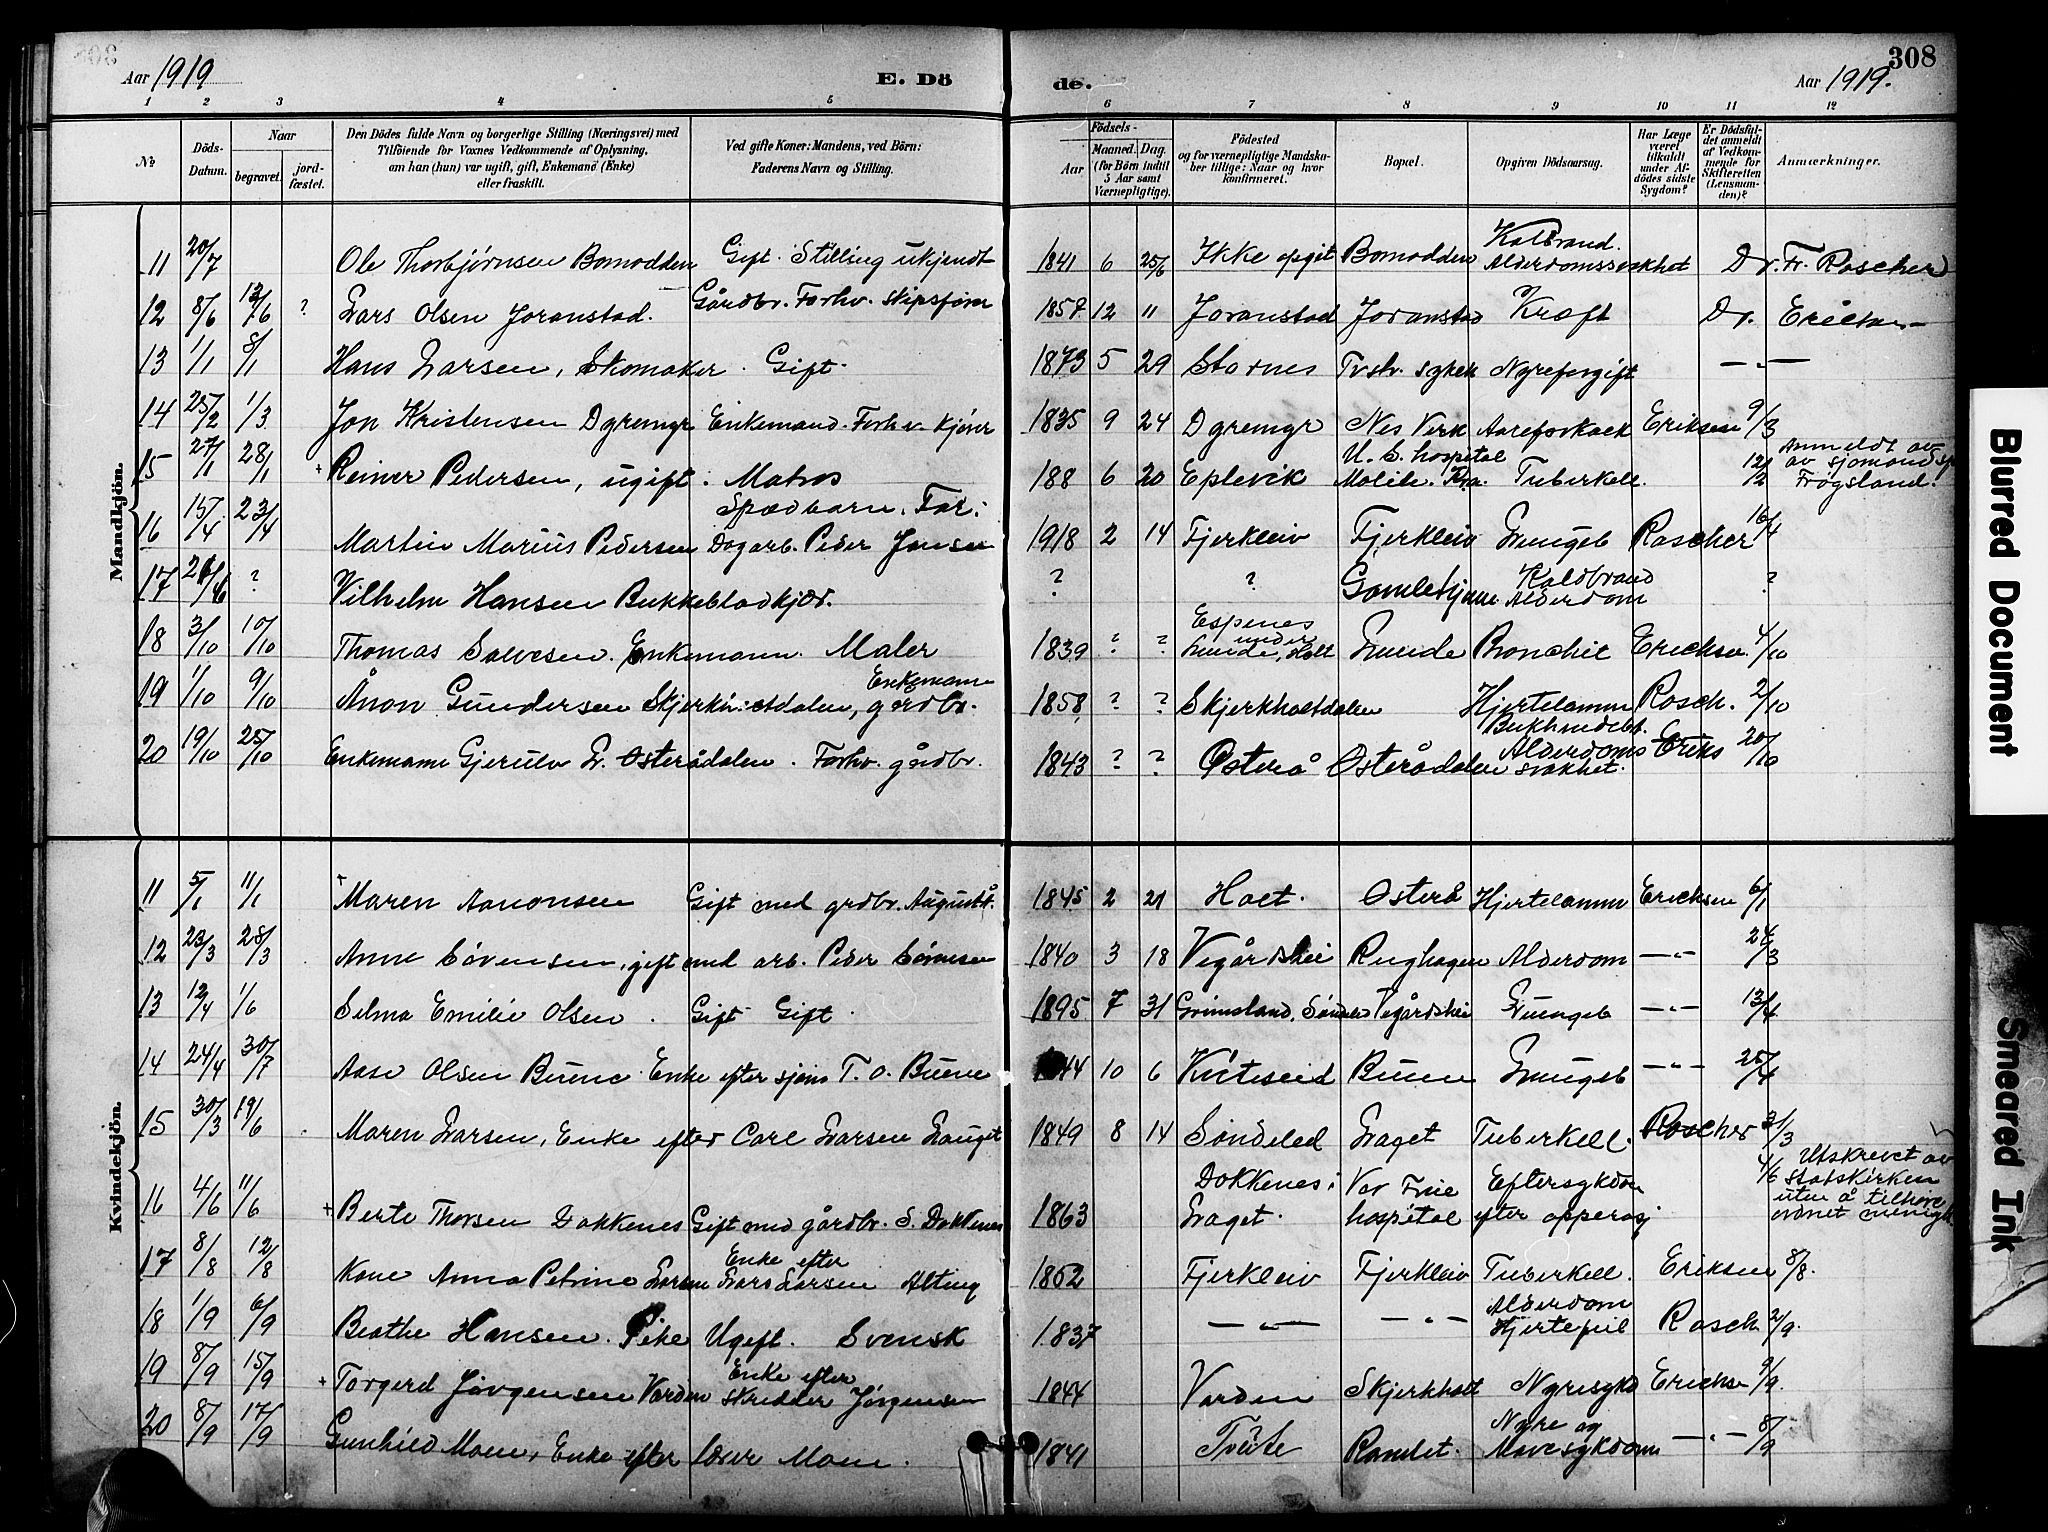 308
Aar 1919 E. Dö de. Aar 1919.
1 2 3 4 5 6 7 8 9 10 11 12
No Döds-Datum. Naar begravet. jordfæstet. Den Dödes fulde Navn og borgerlige Stilling (Næringsvei) med Tilföiende for Voxnes Vedkommende af Oplysning, om han (hun) var ugift, gift, Enkemand (Enke) eller fraskilt. Ved gifte Koner: Mandens, ved Börn: Faderens Navn og Stilling. Födsels- Aar Maaned. Dag. (for Börn indtil 5 Aar samt Værnepligtige). Födested og for værnepligtige Mandskaber tillige: Naar og hvor konfirmeret. Bopæl. Opgiven Dödsaarsag. Har Læge været tilkaldt under Afdödes sidste Sygdom? Er Dödsfaldet anmeldt af Vedkommende for Skifteretten (Lensmanden)? Anmærkninger.
Mandkjön.
11 20/7 Ole Thorbjørnsen Bomodden Gift. Stilling ukjendt 1841 6 25/6 Ikke opgit Bomodden Kolbrand. Alderdomssvakhet Dr. Fr. Roscher
12 8/6 13/6 ? Lars Olsen Joranstad. Gårdbr. Forhv. skipsfører 1858 12 11 Joranstad Joranstad Kræft Dr. Ericksen
13 1/1 8/1 Hans Larsen, Skomaker. Gift. 1873 5 29 Stornes Tvstr. sykeh Nyreforgift — " —
14 25/2 1/3 Jon Kristensen Dgremyr Enkemand. Forhv. kjører 1835 9 24 Dgremyr Nes Verk Aareforkalk Eriksen 9/3
15 27/1 28/1 + Reiner Pedersen, ugift. Matros 188 6 20 Eplevik U. S. hospital Mobile. Tuberkell. 12/2 Anmeldt av av sjomandsp Frøgsland.
16 15/4 23/4 Martin Marius Pedersen Spædbarn. Far: Dagarb. Peder Jensen 1918 2 14 Fjerkleiv Fjerkleiv Lungeb Roscher 16/4
17 ? Vilhelm Hansen Bukkebladkjær. ? ? Gamlehjem Koldbrand Alderdom ?
18 3/10 10/10 Thomas Salvesen. Enkemann. Maler 1839 ? ? Espenes under Lunde, Holt Lunde Bronchit Erichsen 4/10
19 1/10 9/10 Ånon Gundersen Skjerkholtdalen, Enkemann gårdbr. 1858 ? ? Skjerkholtdalen Hjertelamm Bukhindebet. Rosch. 2/10
20 19/10 25/10 Enkemann Gjerulv L. Osterådalen. Forhv. gårdbr. 1843 ? ? Østerå Osterådalen Alderdoms svakhet. Eriks 20/10
Kvindekjön.
11 5/1 11/1 + Maren Aanonsen Gift med grdbr. August Å. 1845 2 21 Holt. Osterå Hjertelamm Ericksen 6/1
12 23/3 28/3 Anne Sørensen, gift med arb. Peder Sørensen 1840 3 18 Vegårdshei Rughagen Alderdom — " — 24/3
13 12/4 1/6 Selma Emilie Olsen. Gift Gift. 1895 7 31 Grimsland, Søndeled Vegårdshei Lungeb — " — 13/4
14 24/4 30/7 Aase Olsen Buene Enke efter sjøm T. O. Buene 1844 10 6 Kviteseid Buen Lungeb — " — 25/4
15 30/3 19/6 Maren Larsen, Enke efter Carl Larsen Lauget 1849 8 14 Søndeled Laget Tuberkell. Roscher 31/3
16 4/6 11/6 + Berte Thorsen Dokkenes Gift med gårdbr. S. Dokkenes 1863 Dokkenes i Laget. Vor Frue hospital Eftersykdom efter operasj 4/6 Utskrevet av Statskirken uten å tilhøre ordnet menigh
17 8/8 12/8 Kone Anna Petrine Larsen Enke efter Lars Larsen Alting 1852 Fjerkleiv Fjerkleiv Tuberkell. Eriksen 8/8.
18 1/9 6/9 Beathe Hansen. Pike Ugift. Svensk 1837 — " — — " — Alderdom Hjertefeil Rosch 2/9.
19 8/9 15/9 + Torgerd Jørgensen Varden Enke efter skredder Jørgensen 1844 Varden Skjerkholt Nyresykd Erichse 9/9.
20 8/9 17/9 Gunhild Moen, Enke efter lærer Moen. 1841 Tveite Ramlet. Nyre og Mavesykdom — " — 8/9
Blurred Document
Smeared Ink